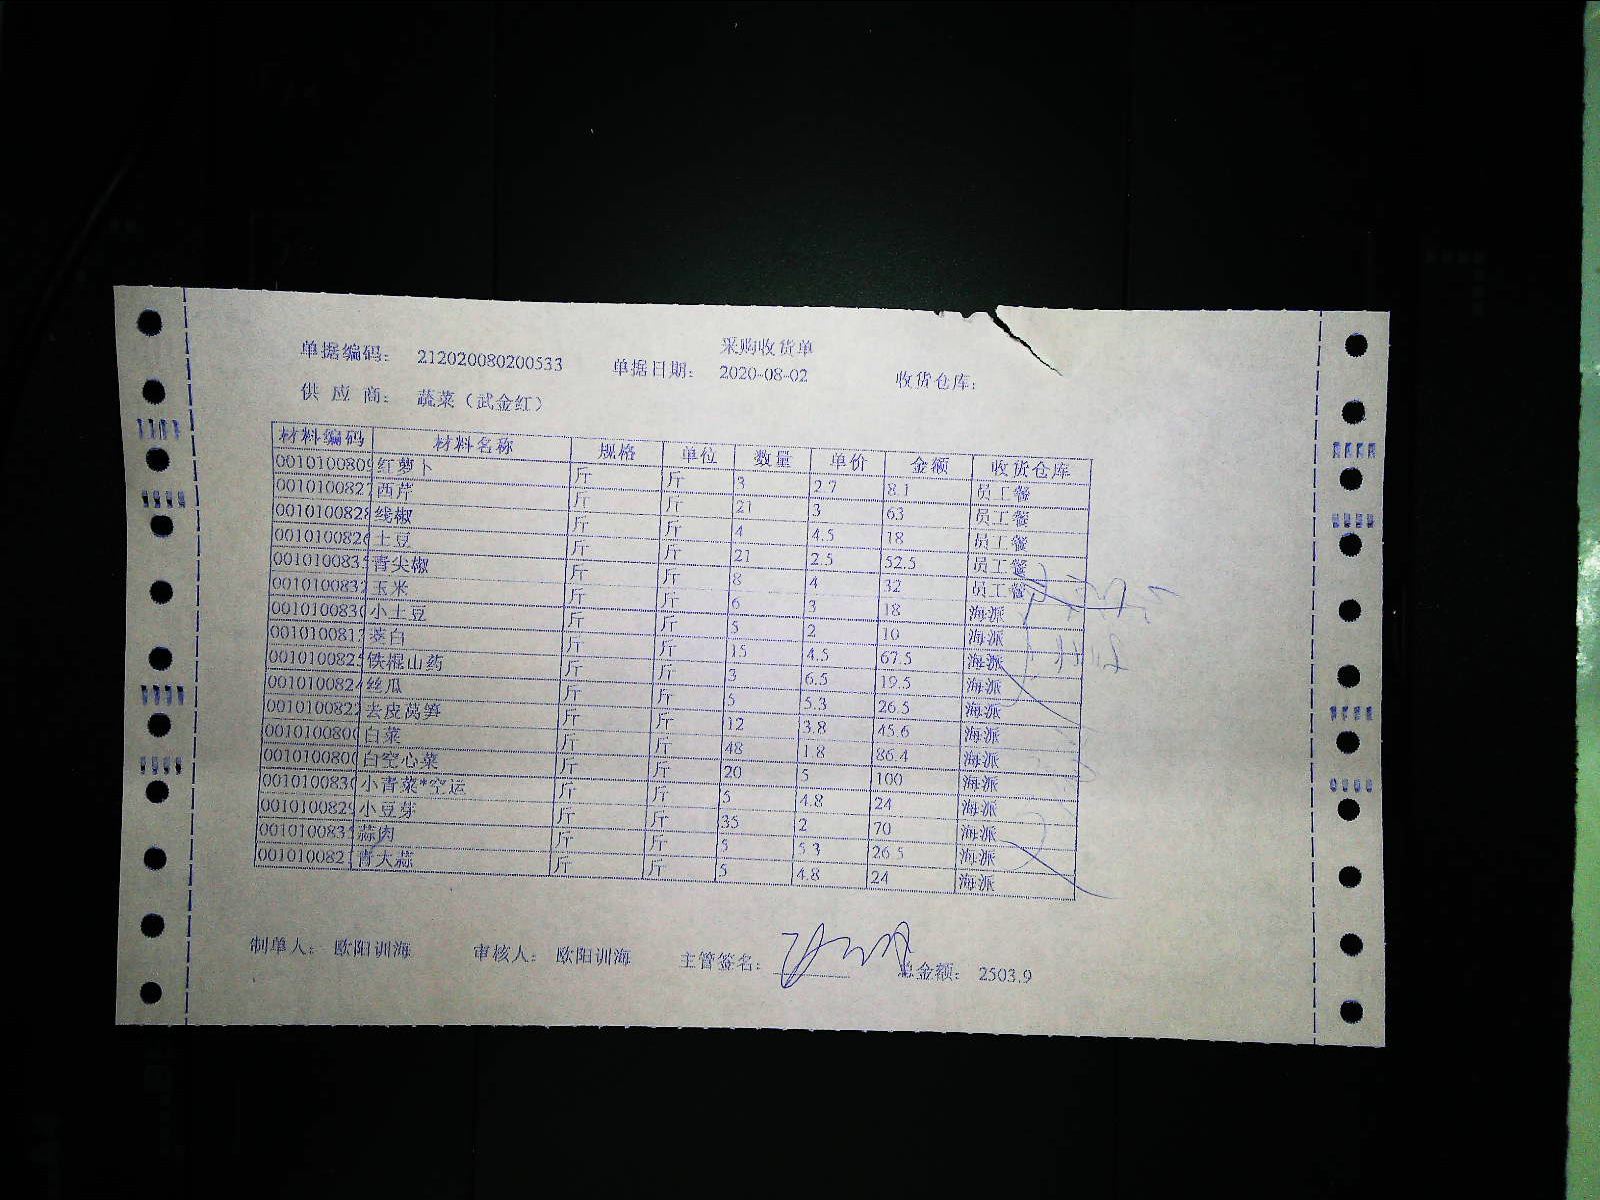 采购收货单
单据编码： 212020080200533 单据日期： 2020-08-02 收货仓库：
供 应 商： 蔬菜（武金红）
材料编码 材料名称 规格 单位 数量 单价 金额 收货仓库
0010100809 红萝卜 斤 斤 3 2.7 8.1 员工餐
001010082 西芹 斤 斤 21 3 63 员工餐
0010100828 线椒 斤 斤 4 4.5 18 员工餐
001010082 土豆 斤 斤 21 2.5 52.5 员工餐
001010083 青尖椒 斤 斤 8 4 32 员工餐
001010083 玉米 斤 斤 6 3 18 海派
001010083 小土豆 斤 斤 5 2 10 海派
001010081 茭白 斤 斤 15 4.5 67.5 海派
001010082 铁棍山药 斤 斤 3 6.5 19.5 海派
001010082 丝瓜 斤 斤 5 5.3 26.5 海派
001010082 去皮莴笋 斤 斤 12 3.8 45.6 海派
001010080 白菜 斤 斤 48 1.8 86.4 海派
001010080 白空心菜 斤 斤 20 5 100 海派
001010083 小青菜*空运 斤 斤 5 4.8 24 海派
001010082 小豆芽 斤 斤 35 2 70 海派
001010083 蒜肉 斤 斤 5 5.3 26.5 海派
001010082 青大蒜 斤 斤 5 4.8 24 海派
制单人： 欧阳训海 审核人： 欧阳训海 主管签名： 总金额： 2503.9